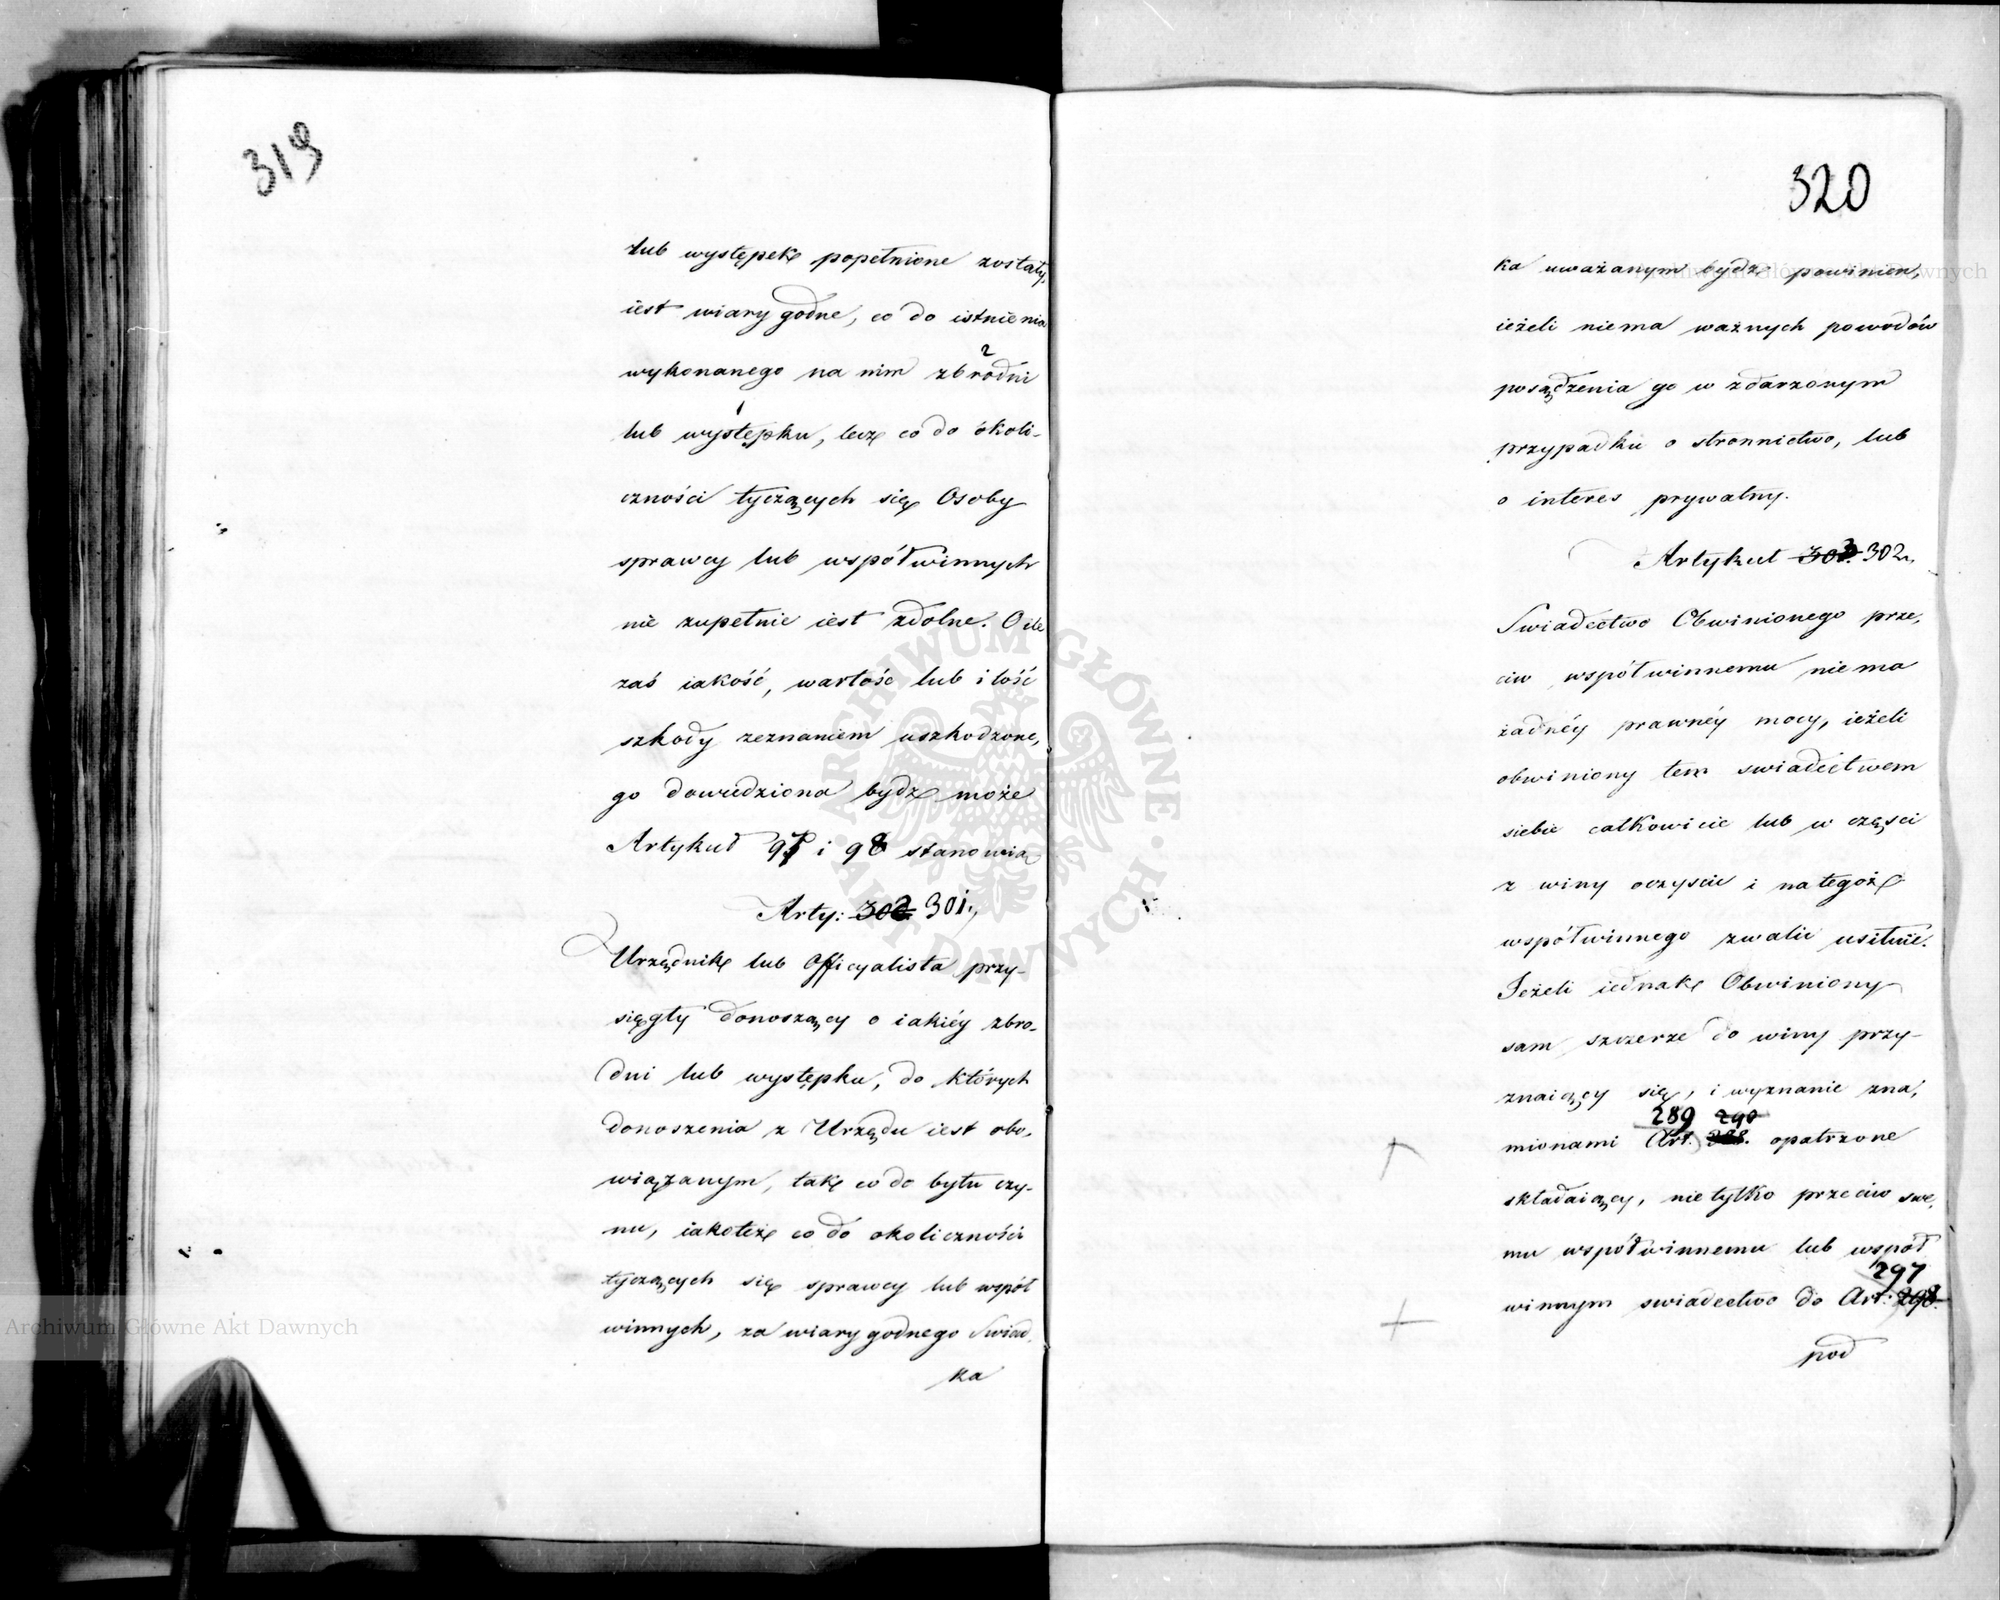 319
lub występek popełnione zostały,
iest wiary godne, co do istnienia
wykonanego na nim zbrodni
lub występku, lecz co do okoli-
czności tyczących się Osoby
sprawcy lub współwinnych
nie zupełnie iest zdolne. O ile
zaś iakość, wartość lub ilość
szkody zeznaniem uszkodzone,
go dowiedziona bydź może
Artykuł 97 i 98 stanowią
Arty: 302 301.
Urzędnik lub Officyalista przy-
sięgły donoszący o iakiéy zbro-
dni lub występku, do których
donoszenia z Urzędu iest obo-
wiązanym, tak co do bytu czy-
nu, iakoteż co do okoliczności
tyczących się sprawcy lub współ
winnych, za wiary godnego Swiad,
ka
320
ka uważanym bydź powinien,
ieżeli niema ważnych powodów
posądzenia go w zdarzonym
przypadku o stronnictwo, lub
o interes prywatny.
Artykuł 303. 302.
Swiadectwo Obwinionego prze,
ciw współwinnemu niema
żadnéy prawnéy mocy, ieżeli
obwiniony tem swiadectwem
siebie całkowicie lub w częsci
z winy oczyscić i na tegoż
współwinnego zwalić usiłuie.
Jeżeli iednak Obwiniony
sam szczerze do winy przy-
znaiący się, i wyznanie zna,
289 290
mionami Art. 288. opatrzone
składaiący, nietylko przeciw swe,
mu współwinnemu lub współ
297
winnym swiadectwo do Art: 298.
pod
Archiwum Główne Akt Dawnych
Archiwum Główne Akt Dawnych
ARCHIWUM GŁÓWNE AKT DAWNYCH